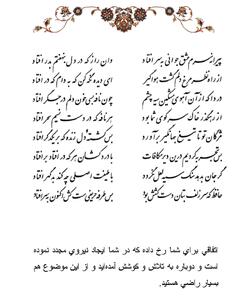 پیرانه سرم عشق جوانی به سر افتاد
وان راز که در دل بنهفتم به در افتاد
از راه نظر مرغ دلم گشت هواگیر
ای دیده نگه کن که به دام که در افتاد
دردا که از آن آهوی مشکین سیه چشم
چون نافه بسی خون دلم در جگر افتاد
از رهگذر خاک سر کوی شما بود
هر نافه که در دست نسیم سحر افتاد
مژگان تو تا تیغ جهانگیر برآورد
بس کشته دل زنده که بر یکدگر افتاد
بس تجربه کردیم در این دیر مکافات
با دردکشان هر که در افتاد بر افتاد
گر جان بدهد سنگ سیه لعل نگردد
با طینت اصلی چه کند بدگهر افتاد
حافظ که سر زلف بتان دست کشش بود
بس طرفه حریفیست کش اکنون به سر افتاد
اتفاقي براي شما رخ داده که در شما ايجاد نيروي مجدد نموده
است و دوباره به تلاش و کوشش آمده‌ايد و از اين موضوع هم
بسيار راضي هستيد.